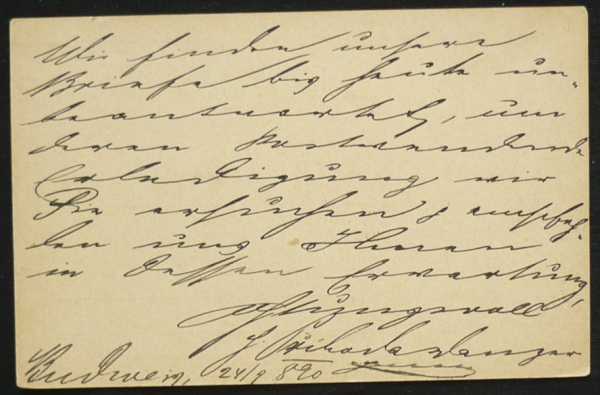 Wir finden unsere
Briefe bis heute un-
beantwortet, um
deren postwendende
Erledigung wir
Sie ersuchen & empfeh-
len uns Ihnen
in dessen Erwartung,
achtungsvoll
Budweis, 24/9 890